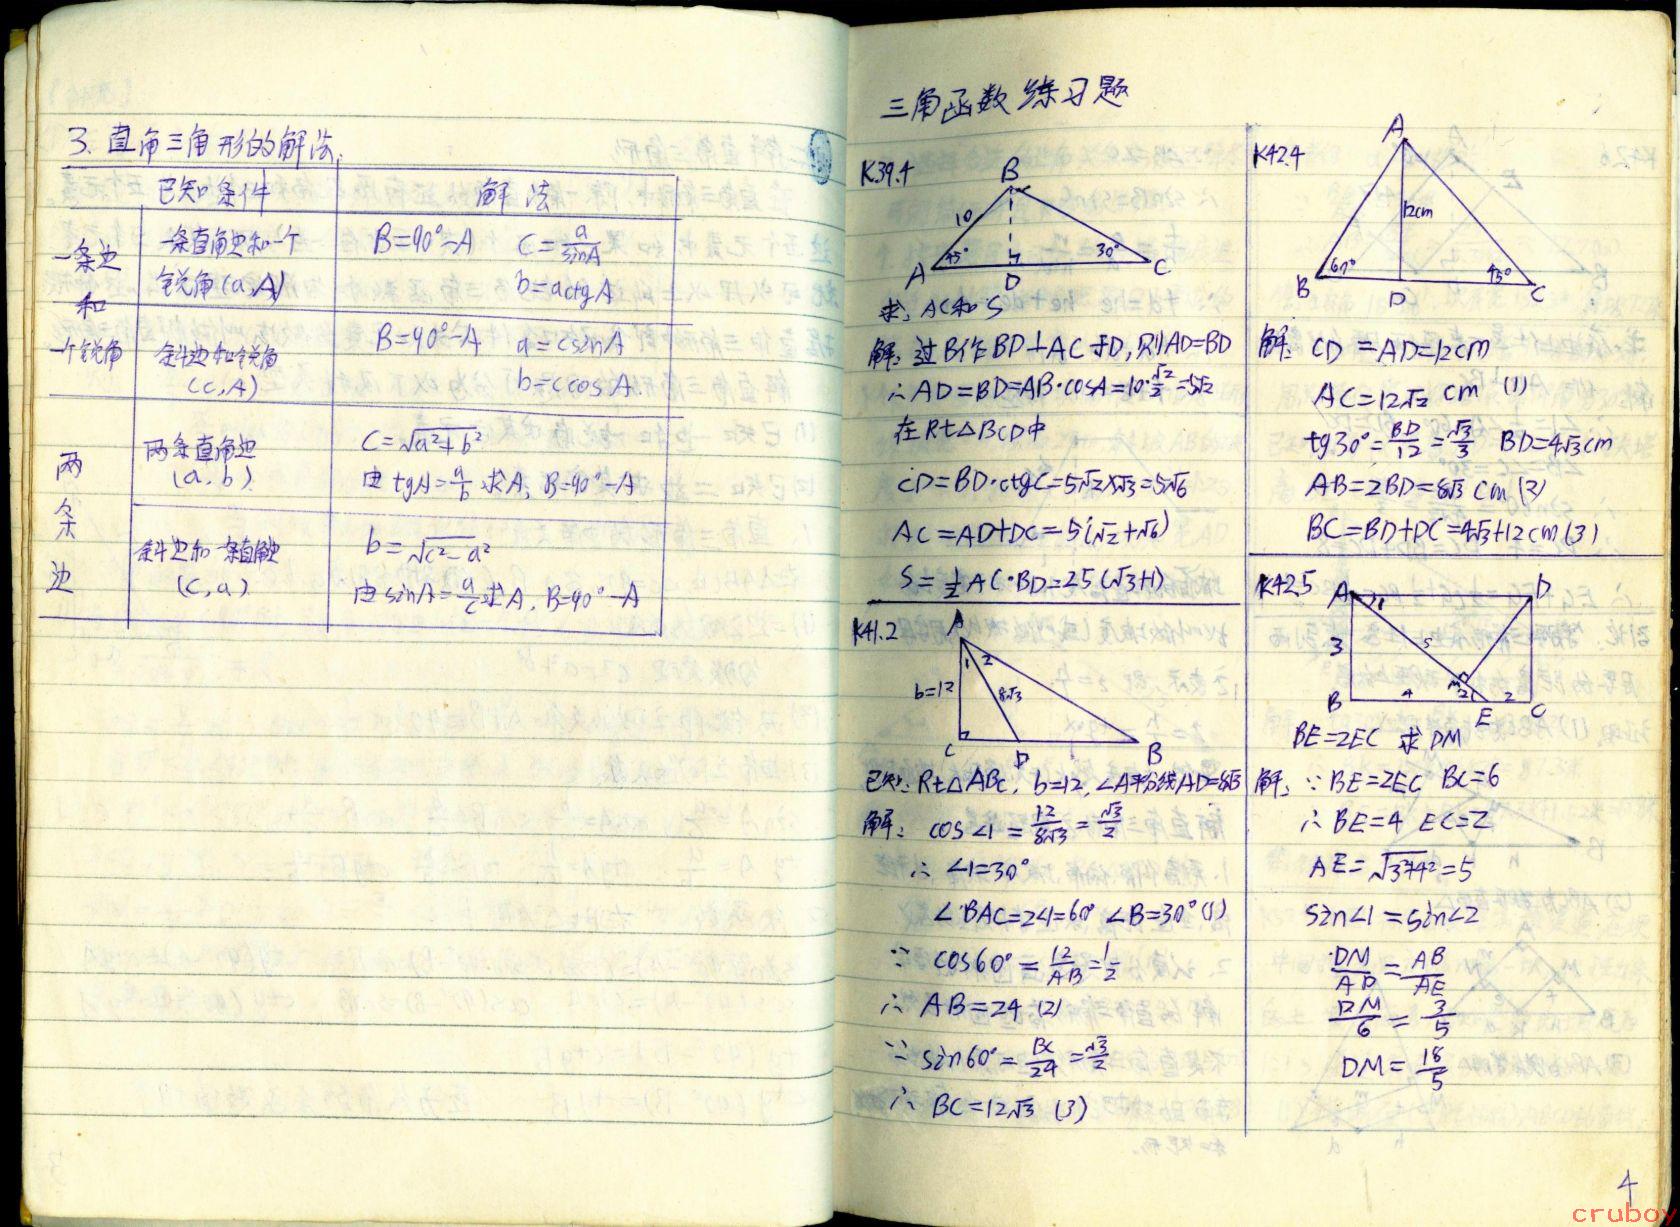 3. 直角三角形的解法.
已知条件 解法
一条边和一个锐角
一条直角边和一个
锐角(a,A)
B=90°-A C=a/sinA
b=actgA
斜边和锐角
(c,A)
B=90°-A a=csinA
b=ccosA.
两条边
两条直角边
(a,b)
C=√(a²+b²)
由tgA=a/b求A, B=90°-A
斜边和一条直角边
(c,a)
b=√(c²-a²)
由sinA=a/c求A, B=90°-A
三角函数练习题
K39.4
B
10
45° 30°
A D C
求: AC和S
解: 过B作BD⊥AC于D, 则AD=BD
∴AD=BD=AB·cosA=10·√2/2=5√2
在Rt△BCD中
CD=BD·ctgC=5√2×√3=5√6
AC=AD+DC=5(√2+√6)
S=1/2AC·BD=25(√3+1)
K41.2
A
1 2
b=12 8√3
C D B
已知: Rt△ABC, b=12, ∠A平分线AD=8√3
解: cos∠1=12/8√3=√3/2
∴ ∠1=30°
∠BAC=2∠1=60° ∠B=30° (1)
∵ cos60°=12/AB=1/2
∴ AB=24 (2)
∵ sin60°=BC/24=√3/2
∴ BC=12√3 (3)
K42.4
A
12cm
60° 45°
B D C
解: CD=AD=12cm
AC=12√2 cm (1)
tg30°=BD/12=√3/3 BD=4√3cm
AB=2BD=8√3 cm (2)
BC=BD+DC=4√3+12cm (3)
K42.5
A 1 D
3 5
M
B 4 2 E 2 C
BE=2EC 求DM
解: ∵BE=2EC BC=6
∴BE=4 EC=2
AE=√(3²+4²)=5
sin∠1=sin∠2
DM/AD=AB/AE
DM/6=3/5
DM=18/5
4
cruboy